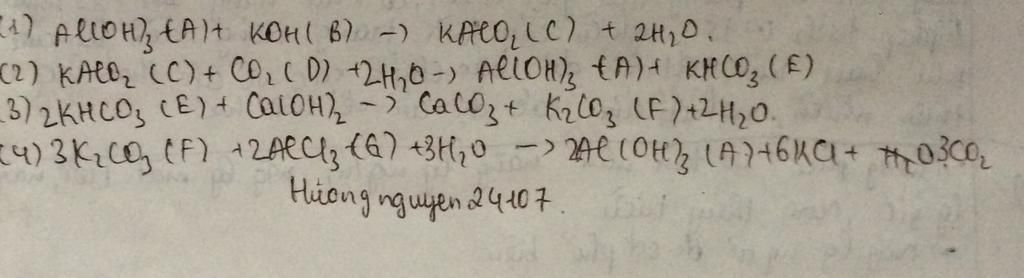 (1) Al(OH)₃ (A) + KOH (B) → KAlO₂ (C) + 2H₂O.
(2) KAlO₂ (C) + CO₂ (D) + 2H₂O → Al(OH)₃ (A) + KHCO₃ (E)
3) 2KHCO₃ (E) + Ca(OH)₂ → CaCO₃ + K₂CO₃ (F) + 2H₂O.
(4) 3K₂CO₃ (F) + 2AlCl₃ (G) + 3H₂O → 2Al(OH)₃ (A) + 6KCl + 3CO₂
Hương nguyen 24107.